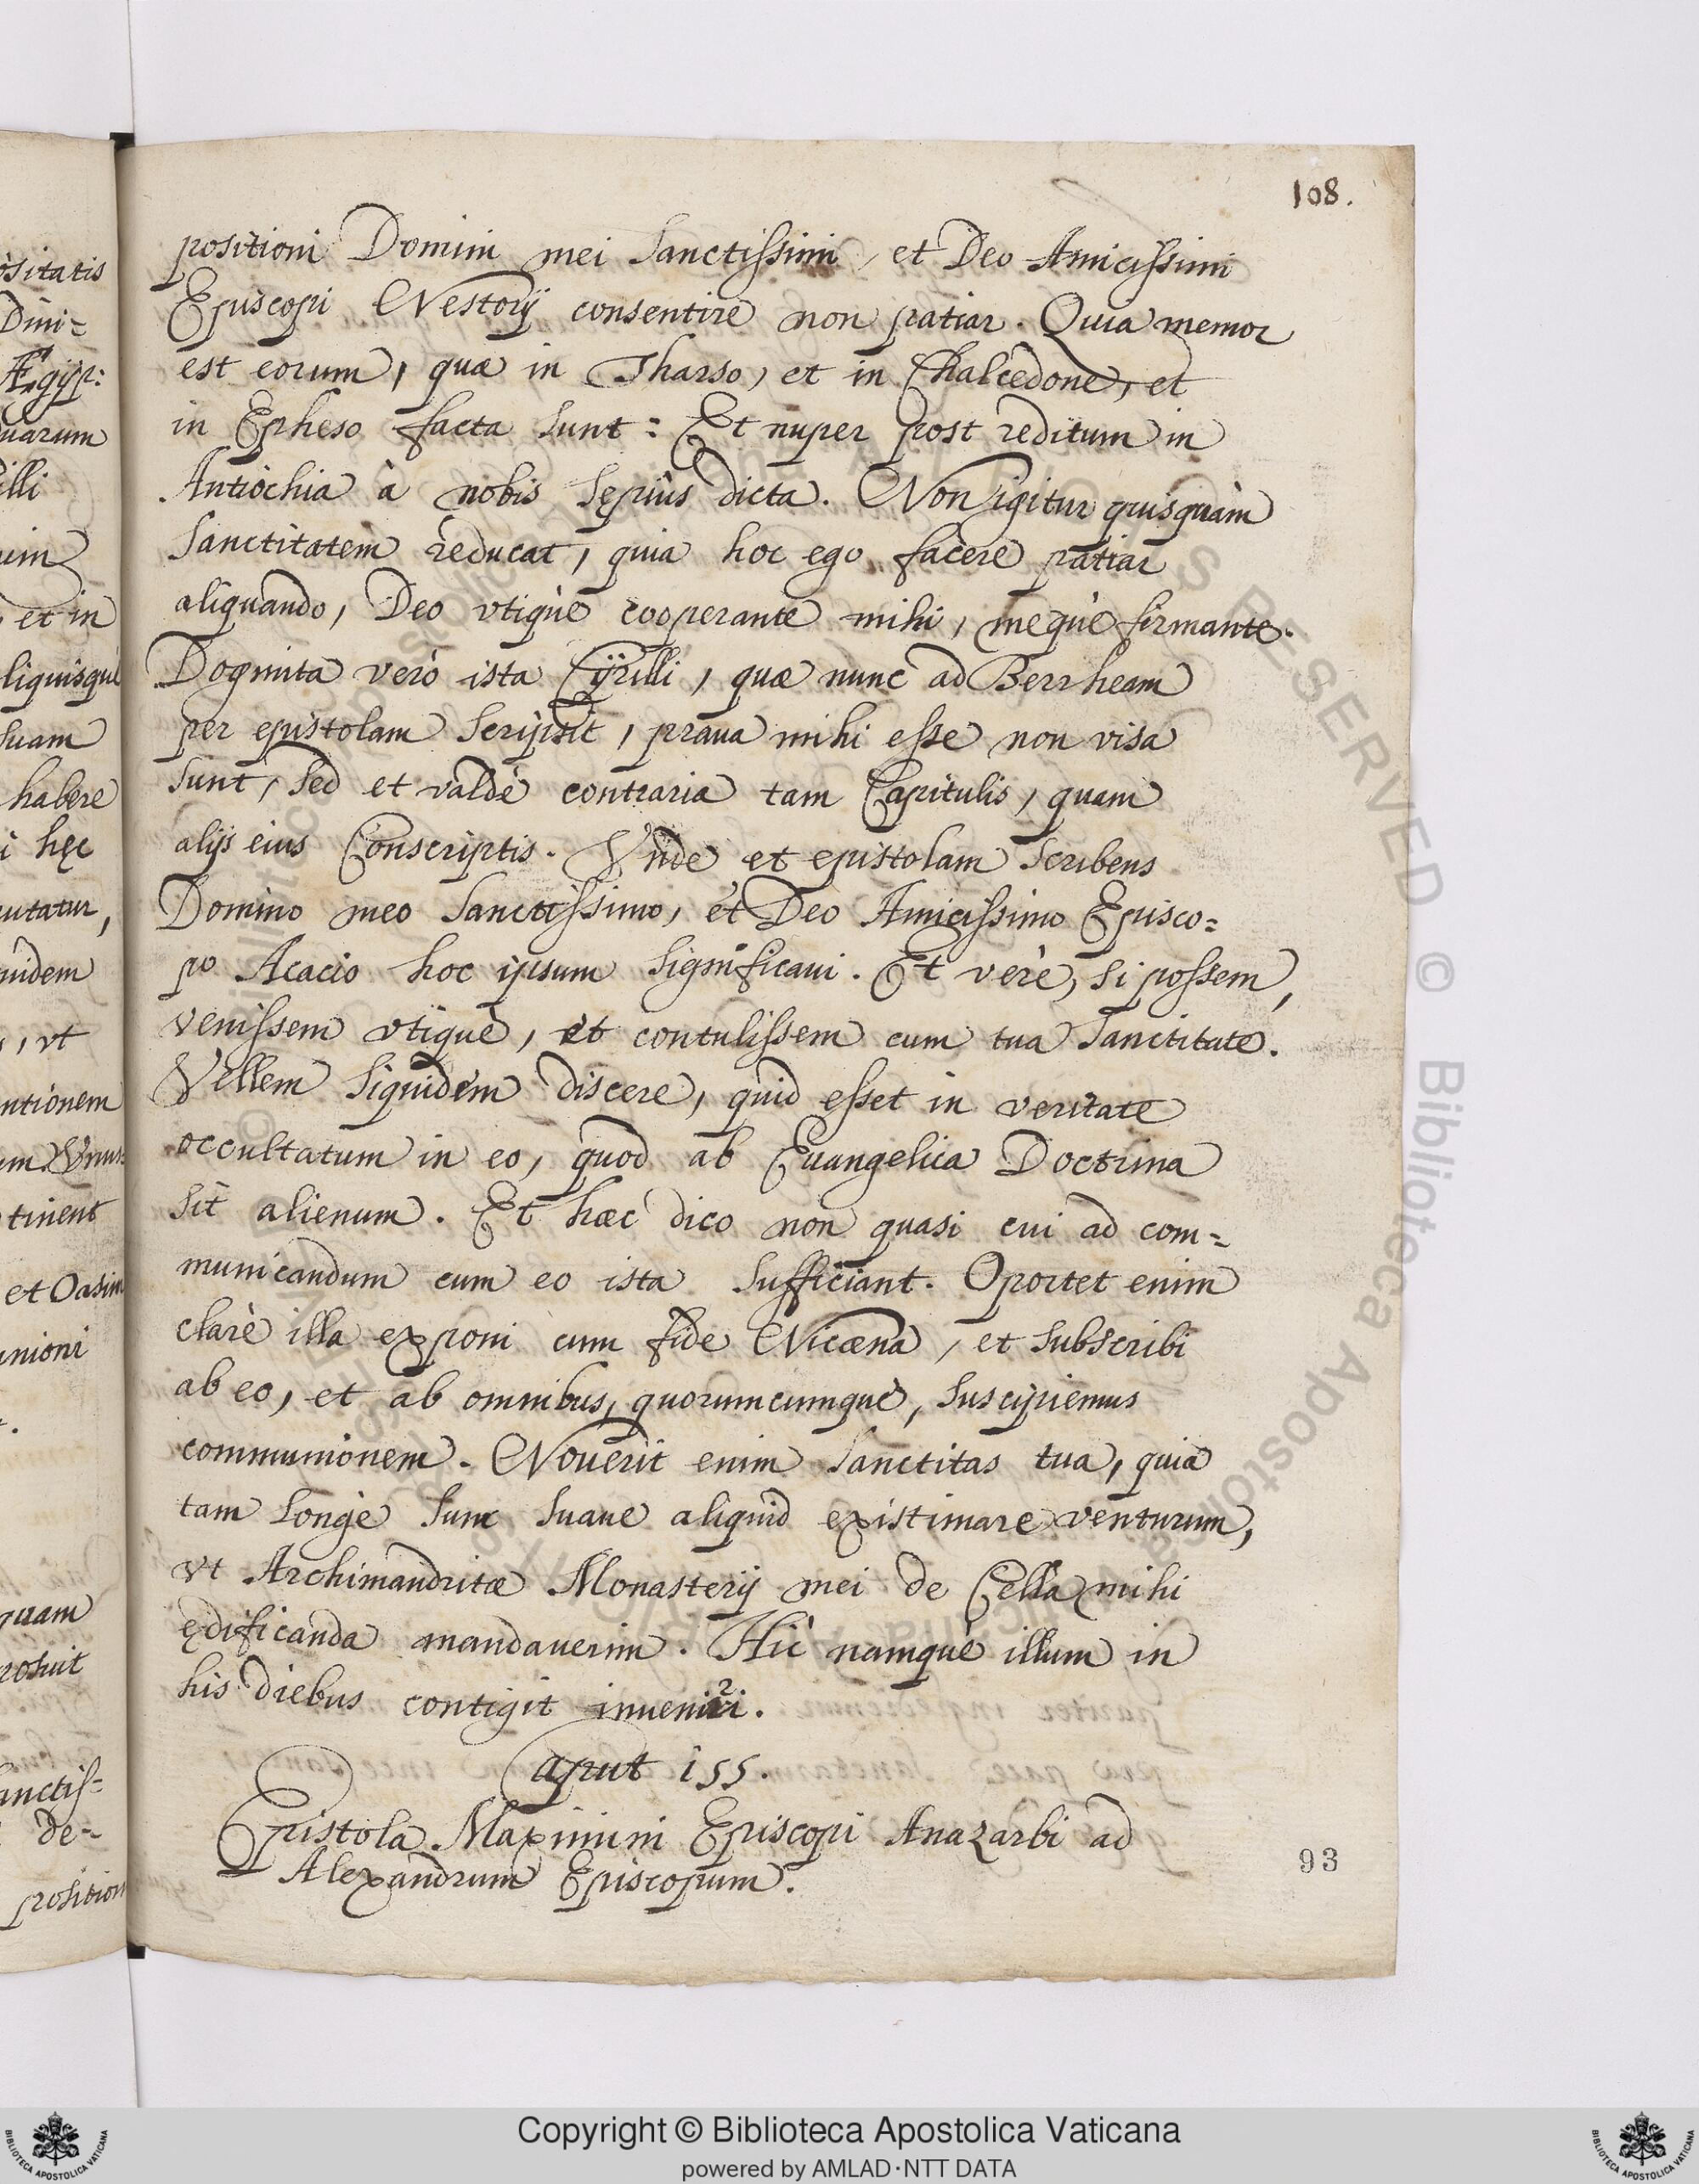 108.
positioni Domini mei Sanctissimi, et Deo Amicissimi
Episcopi Nestorij consentire non patiar. Quia memor
est eorum, quæ in Tharso, et in Chalcedone, et
in Epheso facta sunt: Et nuper post reditum in
Antiochia à nobis sępiùs dicta. Non igitur quisquàm
Sanctitatem réducat, quia hoc ego facere patiar
aliquando, Deo vtiquè cooperante mihi, mequè firmante.
Dogmita verò ista Cÿrilli, quæ nunc ad Berrheam
per epistolam scripsit, praua mihi esse non visa
sunt, sed et valdè contraria tam Capitulis, quam
alijs eius Conscriptis. Vnde et epistolam scribens
Domino meo Sanctissimo, et Deo Amicissimo Episco=
po Acacio hoc ipsum significaui. Et verè, si possem,
venissem vtiquè, et contulissem cum tua Sanctitate.
Vellem siquidem discere, quid esset in veritate
occultatum in eo, quod ab Euangelica Doctrina
sit alienum. Et hæc dico non quasi cui ad com=
municandum cum eo ista sufficiant. Oportet enim
clarè illa exponi cum fide Nicæna, et subscribi
ab eo, et ab omnibus, quorumcumquè, suscipiemus
communionem. Nouerit enim Sanctitas tua, quia
tam longè sum suaue aliquid existimare venturum,
vt Archimandritæ Monasterij mei de Cella mihi
ędificanda mandauerim. Hic namquè illum in
his diebus contigit inueniri.
Caput 155.
Epistola Maximini Episcopi Anazarbi ad
Alexandrum Episcopum.
93
ositatis
Dini=
Ægijp:
uarum
illi
et in
liquisquè
suam
habere
hęc
utatur,
uidem
, vt
ntionem
tinent
et Oasim
unioni
quam
rosuit
anctis=
de=
position
Copyright © Biblioteca Apostolica Vaticana
powered by AMLAD·NTT DATA